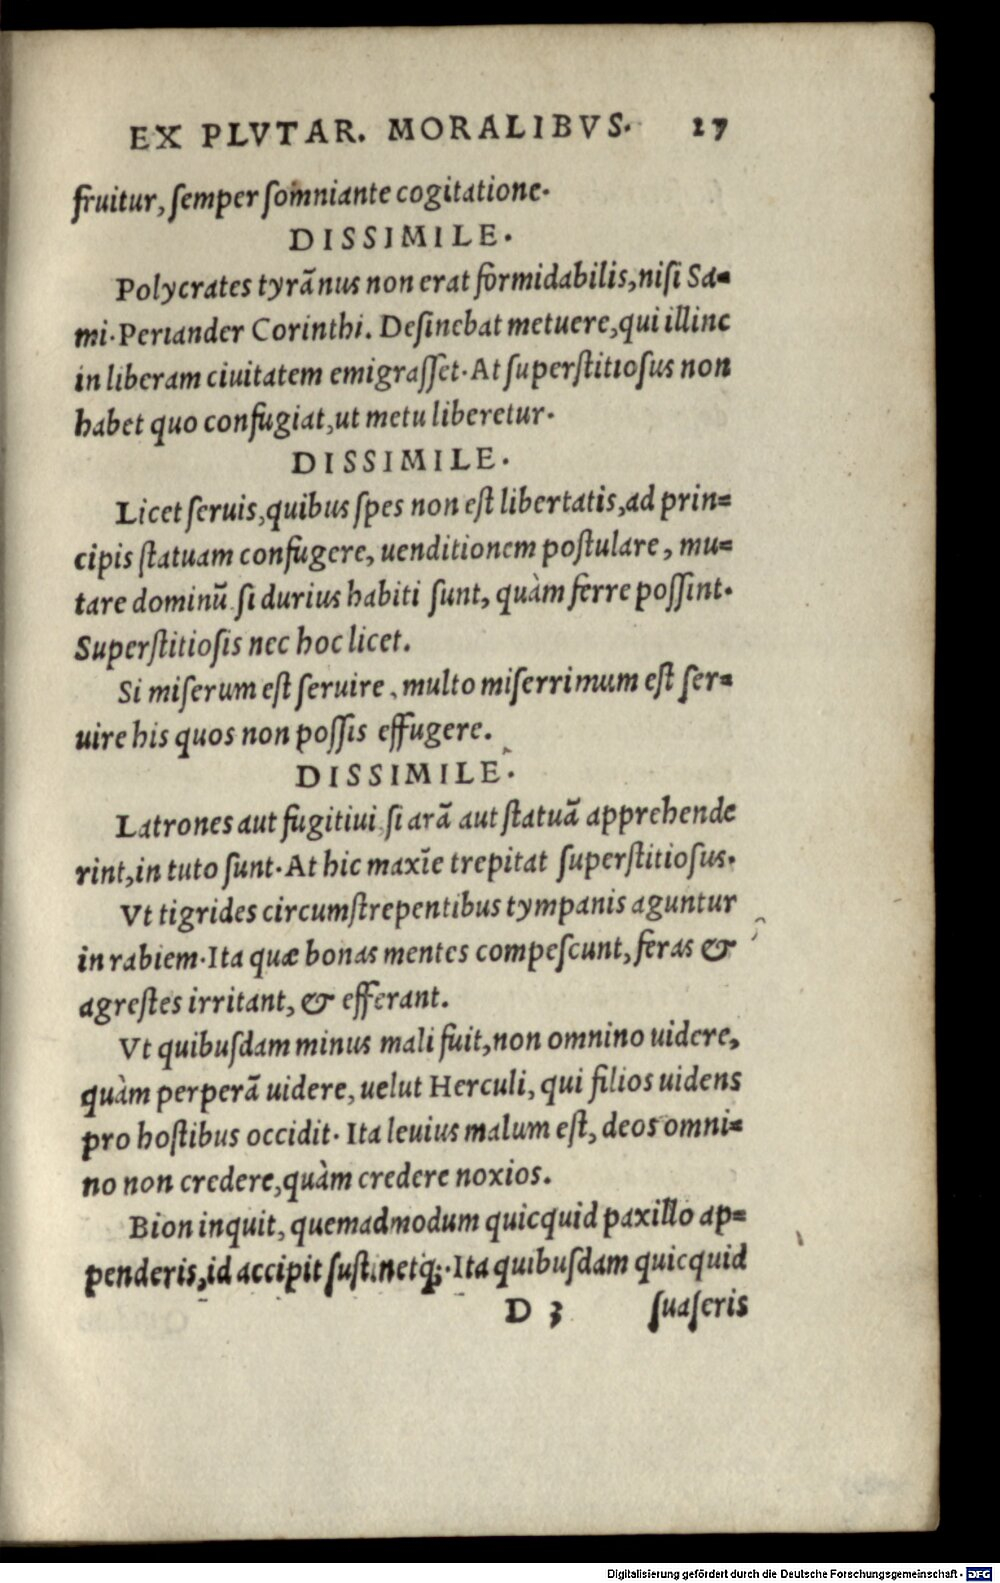 EX PLVTAR. MORALIBVS. 27
fruitur, ſemper ſomniante cogitatione.
DISSIMILE.
Polycrates tyrãnus non erat formidabilis, niſi Sa=
mi. Periander Corinthi. Deſinebat metuere, qui illinc
in liberam ciuitatem emigraſſet. At ſuperſtitioſus non
habet quo confugiat, ut metu liberetur.
DISSIMILE.
Licet ſeruis, quibus ſpes non eſt libertatis, ad prin=
cipis ſtatuam confugere, uenditionem poſtulare, mu=
tare dominũ ſi durius habiti ſunt, quàm ferre poſſint.
Superſtitioſis nec hoc licet.
Si miſerum eſt ſeruire, multo miſerrimum eſt ſer=
uire his quos non poſſis effugere.
DISSIMILE.
Latrones aut fugitiui ſi arã aut ſtatuã apprehende
rint, in tuto ſunt. At hic maxĩe trepitat ſuperſtitioſus.
Vt tigrides circumſtrepentibus tympanis aguntur
in rabiem. Ita quæ bonas mentes compeſcunt, feras &
agreſtes irritant, & efferant.
Vt quibuſdam minus mali fuit, non omnino uidere,
quàm perperã uidere, uelut Herculi, qui filios uidens
pro hoſtibus occidit. Ita leuius malum eſt, deos omni=
no non credere, quàm credere noxios.
Bion inquit, quemadmodum quicquid paxillo ap=
penderis, id accipit ſuſtinetq;. Ita quibuſdam quicquid
D 3 ſuaſeris
Digitalisierung gefördert durch die Deutsche Forschungsgemeinschaft - DFG